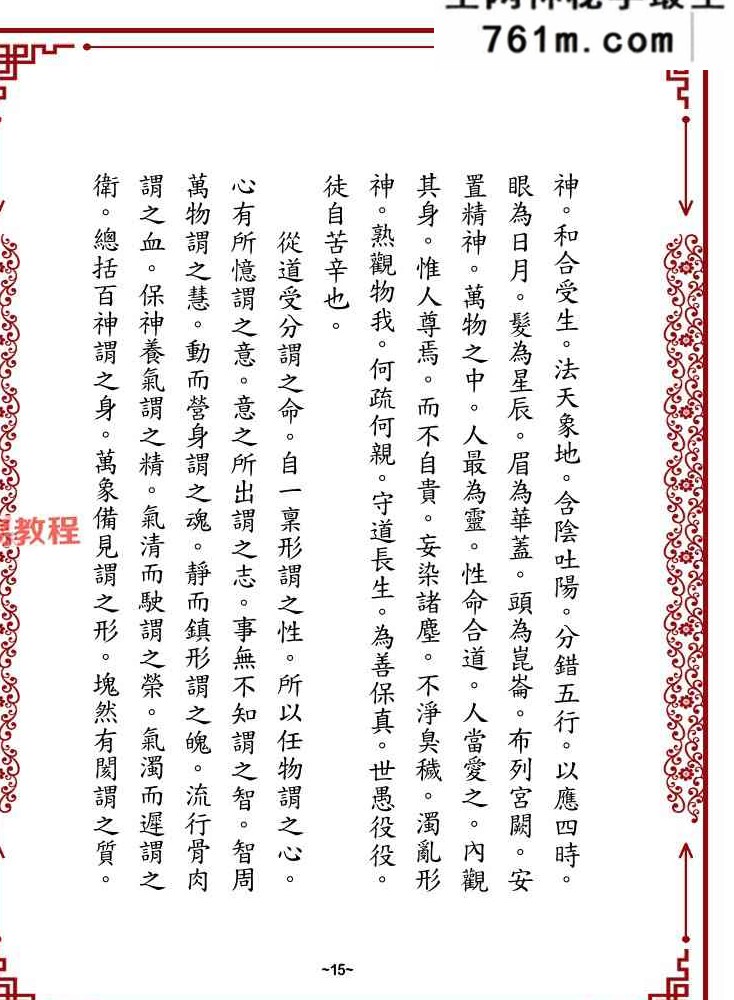 761m.com
神。和合受生。法天象地。含陰吐陽。分錯五行。以應四時。
眼為日月。髮為星辰。眉為華蓋。頭為崑崙。布列宮闕。安
置精神。萬物之中。人最為靈。性命合道。人當愛之。內觀
其身。惟人尊焉。而不自貴。妄染諸塵。不淨臭穢。濁亂形
神。熟觀物我。何疏何親。守道長生。為善保真。世愚役役。
徒自苦辛也。
從道受分謂之命。自一稟形謂之性。所以任物謂之心。
心有所憶謂之意。意之所出謂之志。事無不知謂之智。智周
萬物謂之慧。動而營身謂之魂。靜而鎮形謂之魄。流行骨肉
謂之血。保神養氣謂之精。氣清而駛謂之榮。氣濁而遲謂之
衛。總括百神謂之身。萬象備見謂之形。塊然有閡謂之質。
教程
~15~